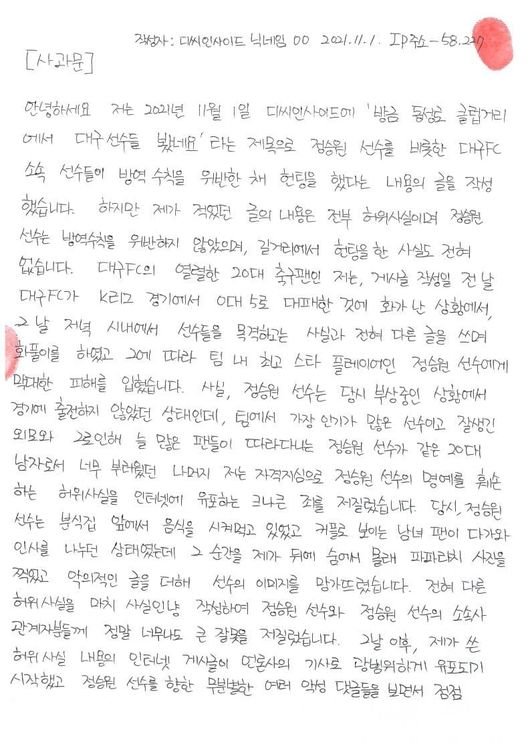 작성자: 디씨인사이드 닉네임 00 2021.11.1. IP주소-58.227
[사과문]
안녕하세요 저는 2021년 11월 1일 디씨인사이드에 '방금 동성로 클럽거리
에서 대구선수들 봤네요'라는 제목으로 정승원 선수를 비롯한 대구FC
소속 선수들이 방역 수칙을 위반한 채 헌팅을 했다는 내용의 글을 작성
했습니다. 하지만 제가 적었던 글의 내용은 전부 허위사실이며 정승원
선수는 방역수칙을 위반하지 않았으며, 길거리에서 헌팅을 한 사실도 전혀
없습니다. 대구FC의 열렬한 20대 축구팬인 저는, 게시글 작성일 전 날
대구FC가 K리그 경기에서 0대 5로 대패한 것에 화가 난 상황에서,
그 날 저녁 시내에서 선수들을 목격하고는 사실과 전혀 다른 글을 쓰며
화풀이를 하였고 그에 따라 팀 내 최고 스타 플레이어인 정승원 선수에게
막대한 피해를 입혔습니다. 사실, 정승원 선수는 당시 부상중인 상황에서
경기에 출전하지 않았던 상태인데, 팀에서 가장 인기가 많은 선수이고 잘생긴
외모와 그로인해 늘 많은 팬들이 따라다니는 정승원 선수가 같은 20대
남자로서 너무 부러웠던 나머지 저는 자격지심으로 정승원 선수의 명예를 훼손
하는 허위사실을 인터넷에 유포하는 크나큰 죄를 저질렀습니다. 당시, 정승원
선수는 분식집 앞에서 음식을 시켜먹고 있었고 커플로 보이는 남녀 팬이 다가와
인사를 나누던 상태였는데 그 순간을 제가 뒤에 숨어서 몰래 파파라치 사진을
찍었고 악의적인 글을 더해 선수의 이미지를 망가뜨렸습니다. 전혀 다른
허위사실을 마치 사실인냥 작성하여 정승원 선수와 정승원 선수의 소속사
관계자분들께 정말 너무나도 큰 잘못을 저질렀습니다. 그날 이후, 제가 쓴
허위사실 내용의 인터넷 게시글이 언론사의 기사로 광범위하게 유포되기
시작했고 정승원 선수를 향한 무분별한 여러 악성 댓글들을 보면서 점점